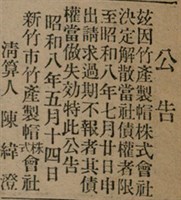 公告
茲因竹產製帽株式會社
決定解散當社債權者限
至昭和八年七月廿日申
出請求過期不報者其債
權當做失効特此公告
昭和八年五月十四日
新竹市竹產製帽株式會社
淸算人 陳緯澄